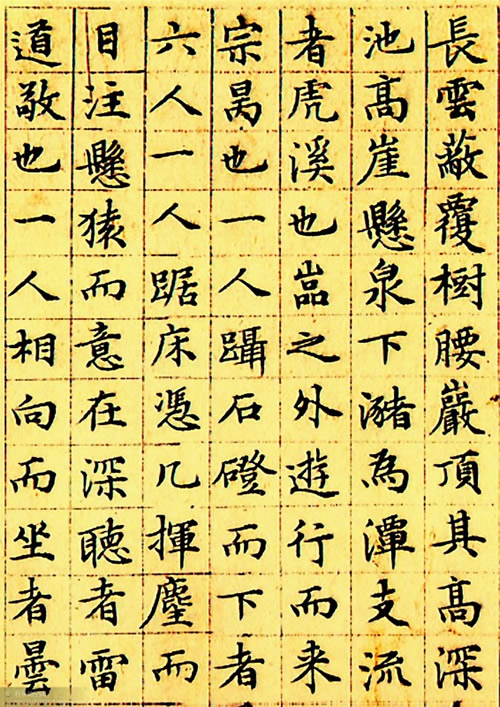 長雲蔽覆樹腰巖頂其高深
池高崖懸泉下瀦為潭支流
者虎溪也嵓之外遊行而来
宗昺也一人躡石磴而下者
六人一人踞床憑几揮麈而
目注懸猿而意在深聽者雷
道敬也一人相向而坐者曇